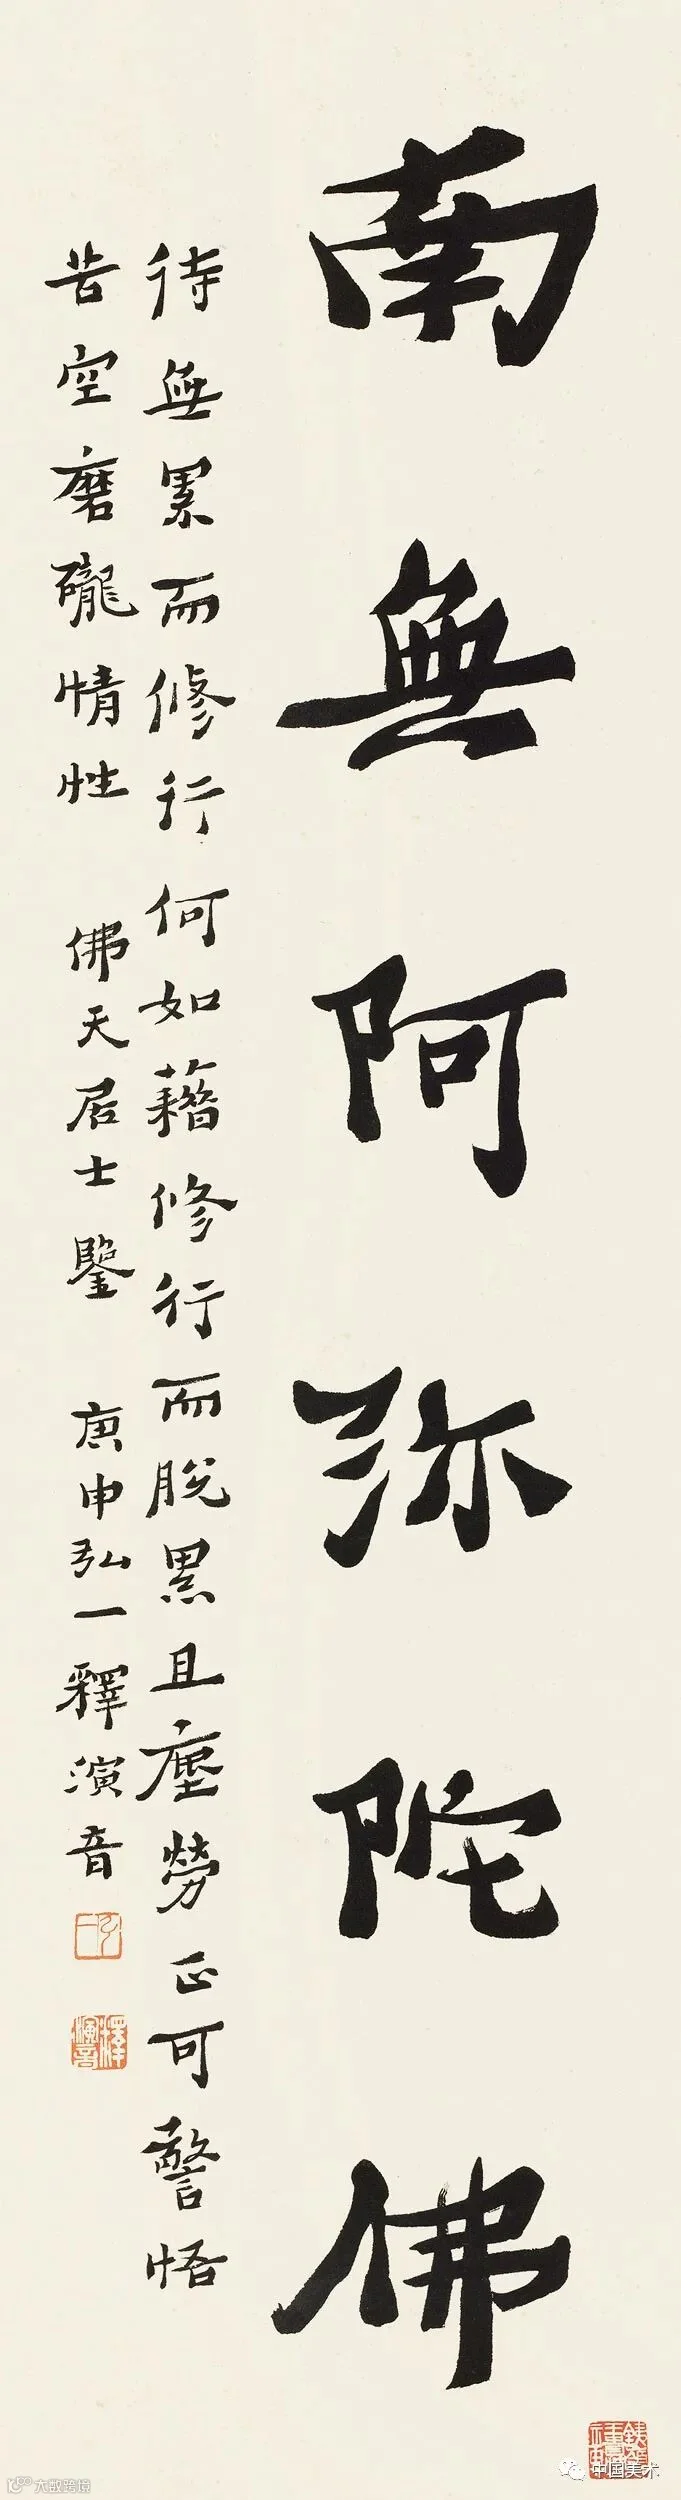 南無阿弥陀佛
待無累而修行何如藉修行而脫累且塵勞正可警悟
苦空磨礲情性 佛天居士鑒 庚申弘一釋演音
弘一
釋演音
中国美术
大数跨境